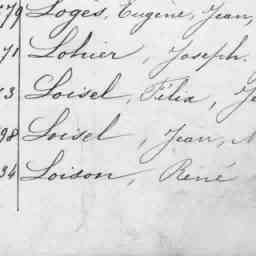 79 Logés, Eugène, Jean,
71 Lohier, Joseph.
3 Loisel, Félix, Je
98 Loisel, Jean, M
34 Loison, René